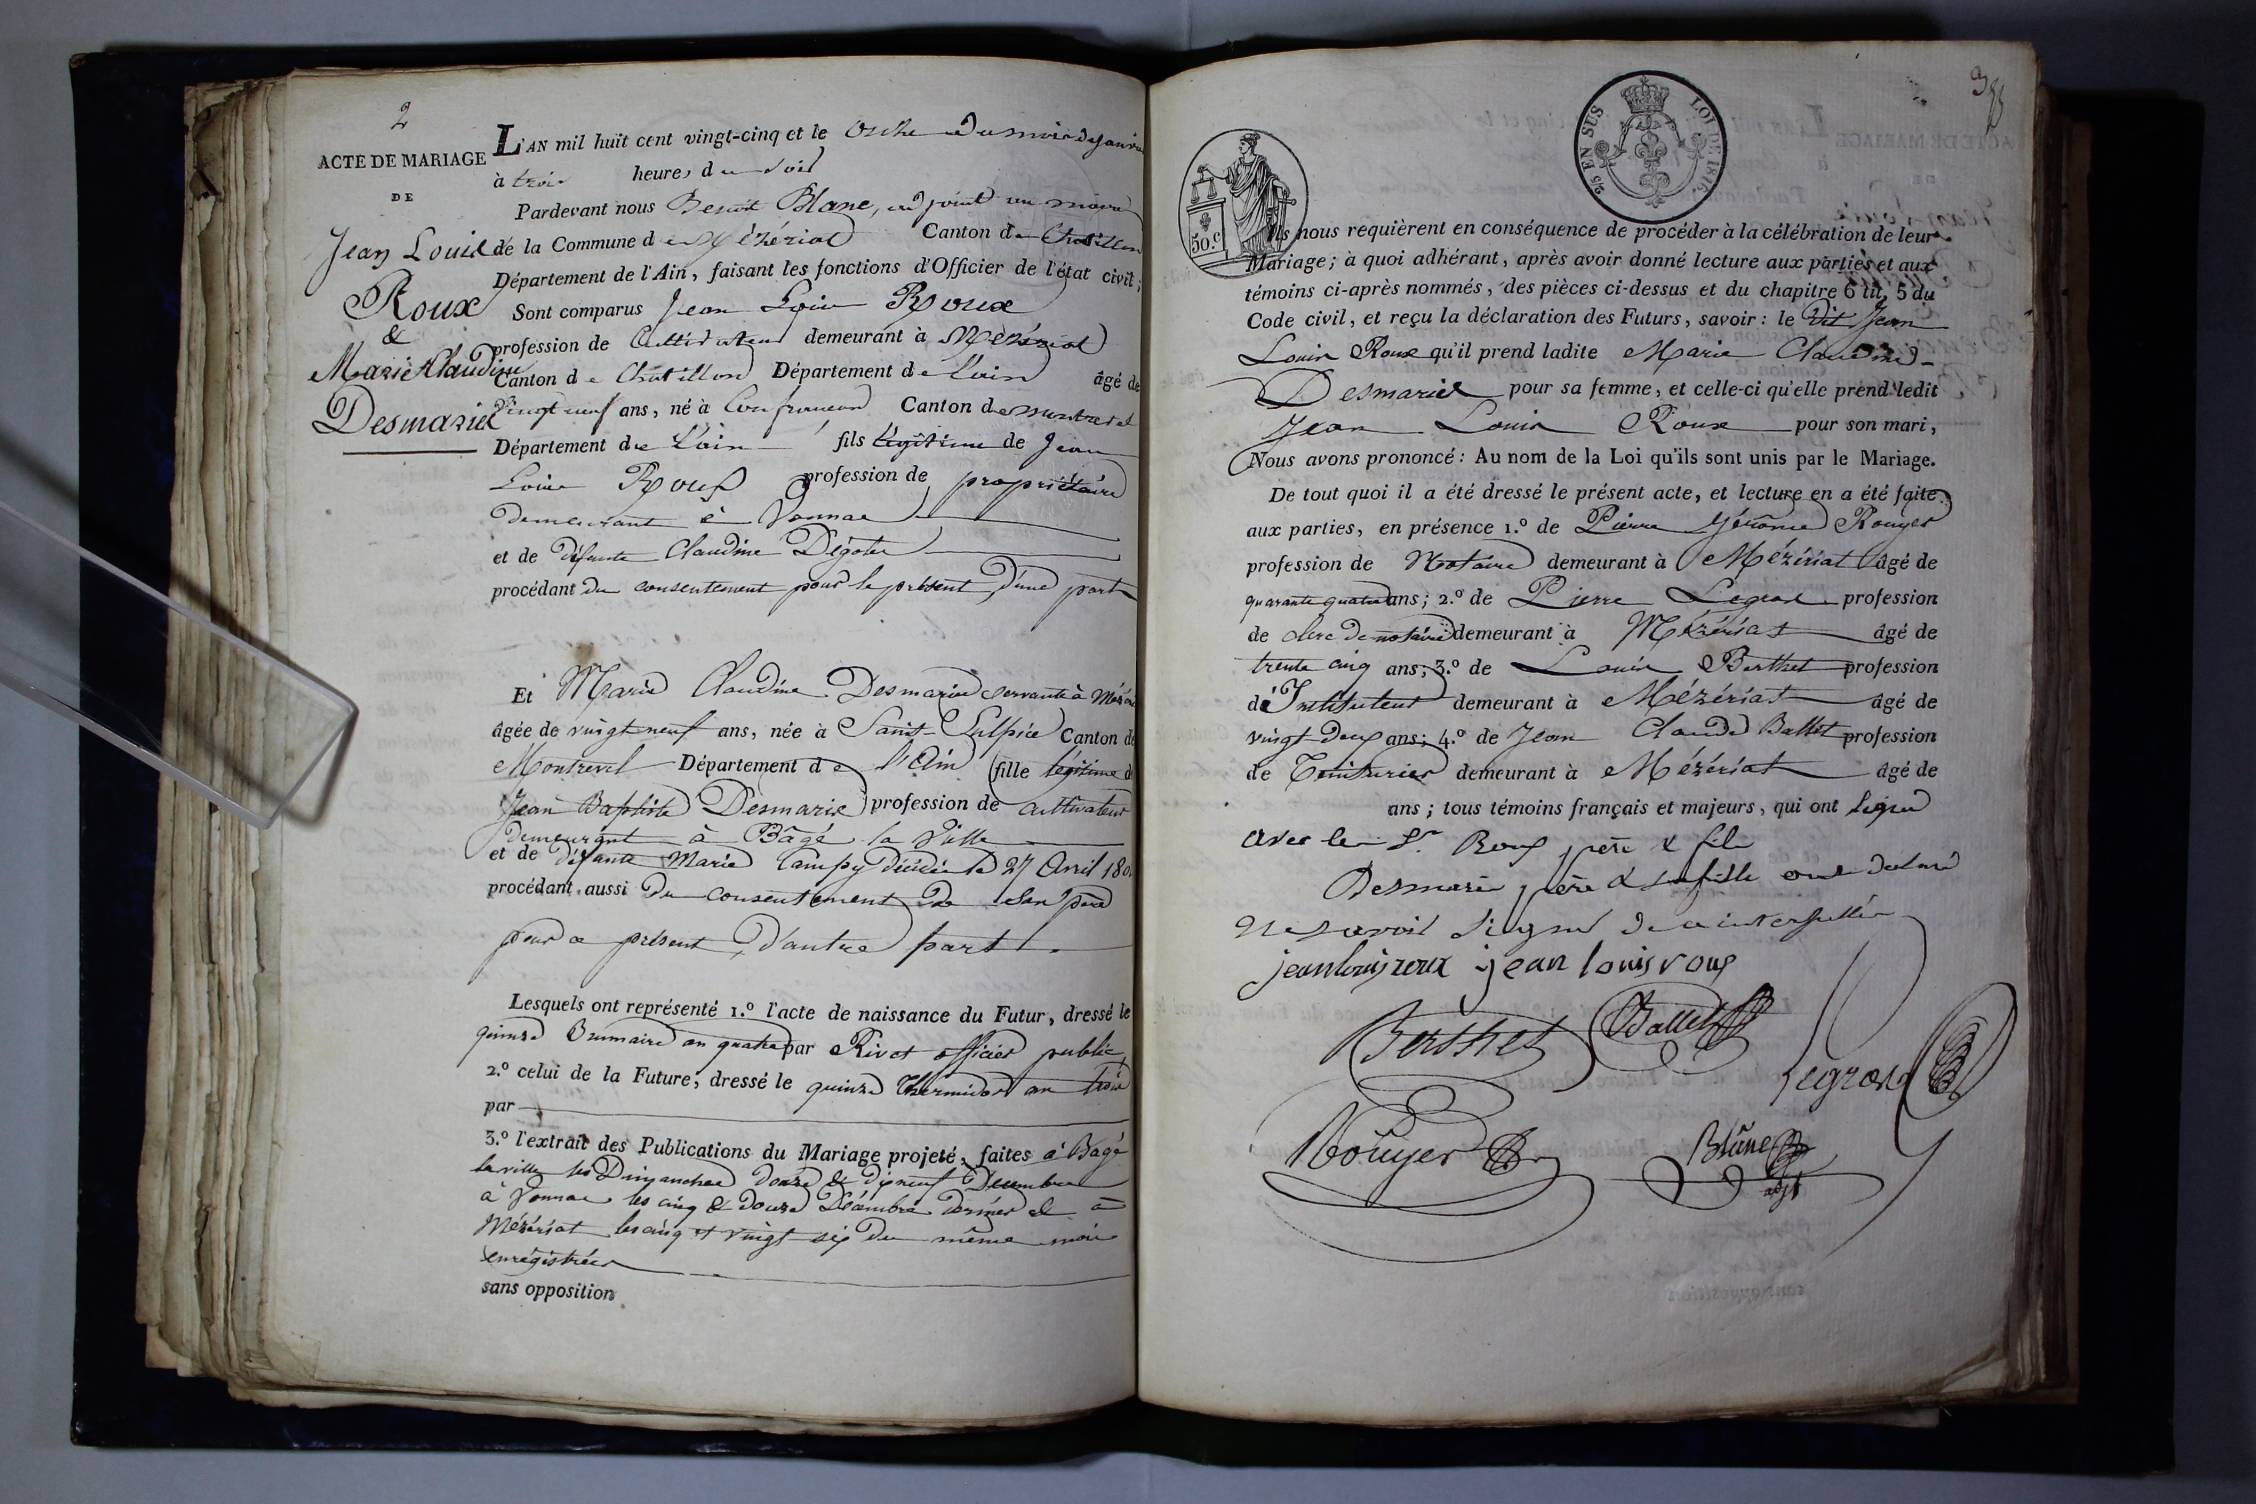 2
ACTE DE MARIAGE
DE
Jean Louis
Roux
&
Marie Claudine
Desmaris
L'AN mil huit cent vingt-cinq et le onze du mois de janvier
à trois heures du soir
Pardevant nous Benoit Blanc, adjoint au maire
de la Commune de Mézériat Canton de Chatillon
Département de l'Ain, faisant les fonctions d'Officier de l'état civil;
Sont comparus Jean Louis Roux
profession de Cultivateur demeurant à Mézériat
Canton de Châtillon Département de l'ain âgé de
vingt neuf ans, né à Confrançon Canton de montrevel
Département de l'ain fils légitime de Jean
Louis Roux profession de propriétaire
demeurant à Vonnas
et de défunte Claudine
procédant du consentement pour le présent, d'une part
Et Marie Claudine Desmaris servante à Mézériat
âgée de vingt neuf ans, née à Saint-Sulpice Canton de
Montrevel Département de l'Ain fille légitime de
Jean Baptiste Desmaris profession de cultivateur
demeurant à Bâgé la Ville
et de défunte Marie décédée le 27 Avril 180
procédant aussi du consentement de son père
pour ce présent, d'autre part.
Lesquels ont représenté 1.º l'acte de naissance du Futur, dressé le
quinze Brumaire an quatre par Rivet officier public
2.º celui de la Future, dressé le quinze thermidor an trois
par
3.º l'extrait des Publications du Mariage projeté, faites à Bagé
la ville les Dimanches douze & dixneuf Décembre
à Vonnas les cinq & douze Décembre dernier et à
Mézériat les cinq & vingt six du même mois
enregistrées
sans opposition
25 EN SUS
LOI DE 1816.
50.C
Ils nous requièrent en conséquence de procéder à la célébration de leur
Mariage; à quoi adhérant, après avoir donné lecture aux parties et aux
témoins ci-après nommés, des pièces ci-dessus et du chapitre 6 tit. 5 du
Code civil, et reçu la déclaration des Futurs, savoir: le dit Jean
Louis Roux qu'il prend ladite Marie Claudine
Desmaris pour sa femme, et celle-ci qu'elle prend ledit
Jean Louis Roux pour son mari,
Nous avons prononcé: Au nom de la Loi qu'ils sont unis par le Mariage.
De tout quoi il a été dressé le présent acte, et lecture en a été faite
aux parties, en présence 1.º de Pierre Jérôme Rouyer
profession de Notaire demeurant à Mézériat âgé de
quarante quatre ans; 2.º de Pierre Legrand profession
de clerc de notaire demeurant à Mézériat âgé de
trente cinq ans; 3.º de Louis Berthet profession
d'Instituteur demeurant à Mézériat âgé de
vingt-deux ans; 4.º de Jean Claude Ballet profession
de Teinturier demeurant à Mézériat âgé de
ans; tous témoins français et majeurs, qui ont signé
avec les Sr. Roux père & fils
Desmaris père & sa fille ont déclaré
ne savoir signer de ce interpellés
jean louis roux jean louis roux
Berthet Ballet
Legrand
Rouyer Blanc
adjt